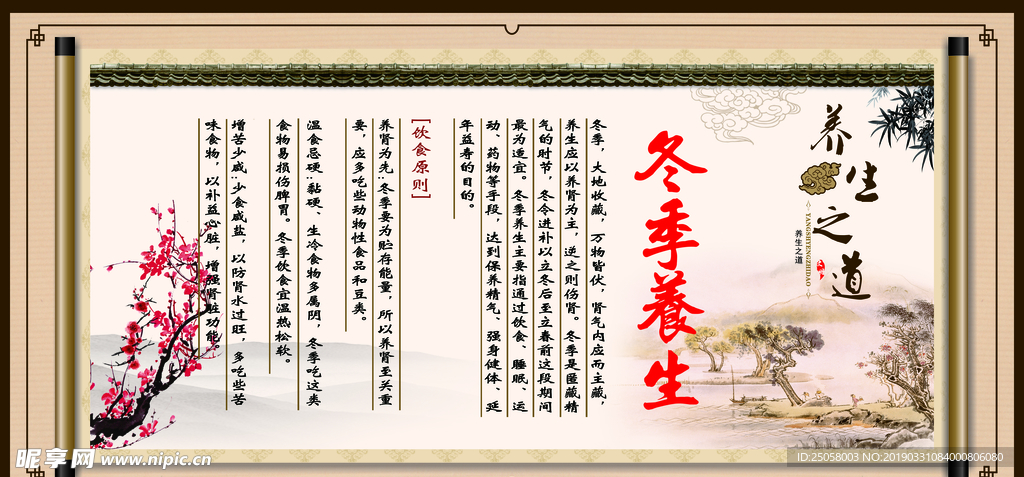 养生之道
YANGSHENGZHIDAO
养生之道
冬季養生
冬季，大地收藏，万物皆伏，肾气内应而主藏，
养生应以养肾为主，逆之则伤肾。冬季是匿藏精
气的时节，冬令进补以立冬后至立春前这段期间
最为适宜。冬季养生主要指通过饮食、睡眠、运
动、药物等手段，达到保养精气、强身健体、延
年益寿的目的。
[饮食原则]
养肾为先:冬季要为贮存能量，所以养肾至关重
要，应多吃些动物性食品和豆类。
温食忌硬:黏硬、生冷食物多属阴，冬季吃这类
食物易损伤脾胃。冬季饮食宜温热松软。
增苦少咸:少食咸盐，以防肾水过旺，多吃些苦
味食物，以补益心脏，增强肾脏功能。
昵享网 www.nipic.cn
ID:25058003 NO:20190331084000806080